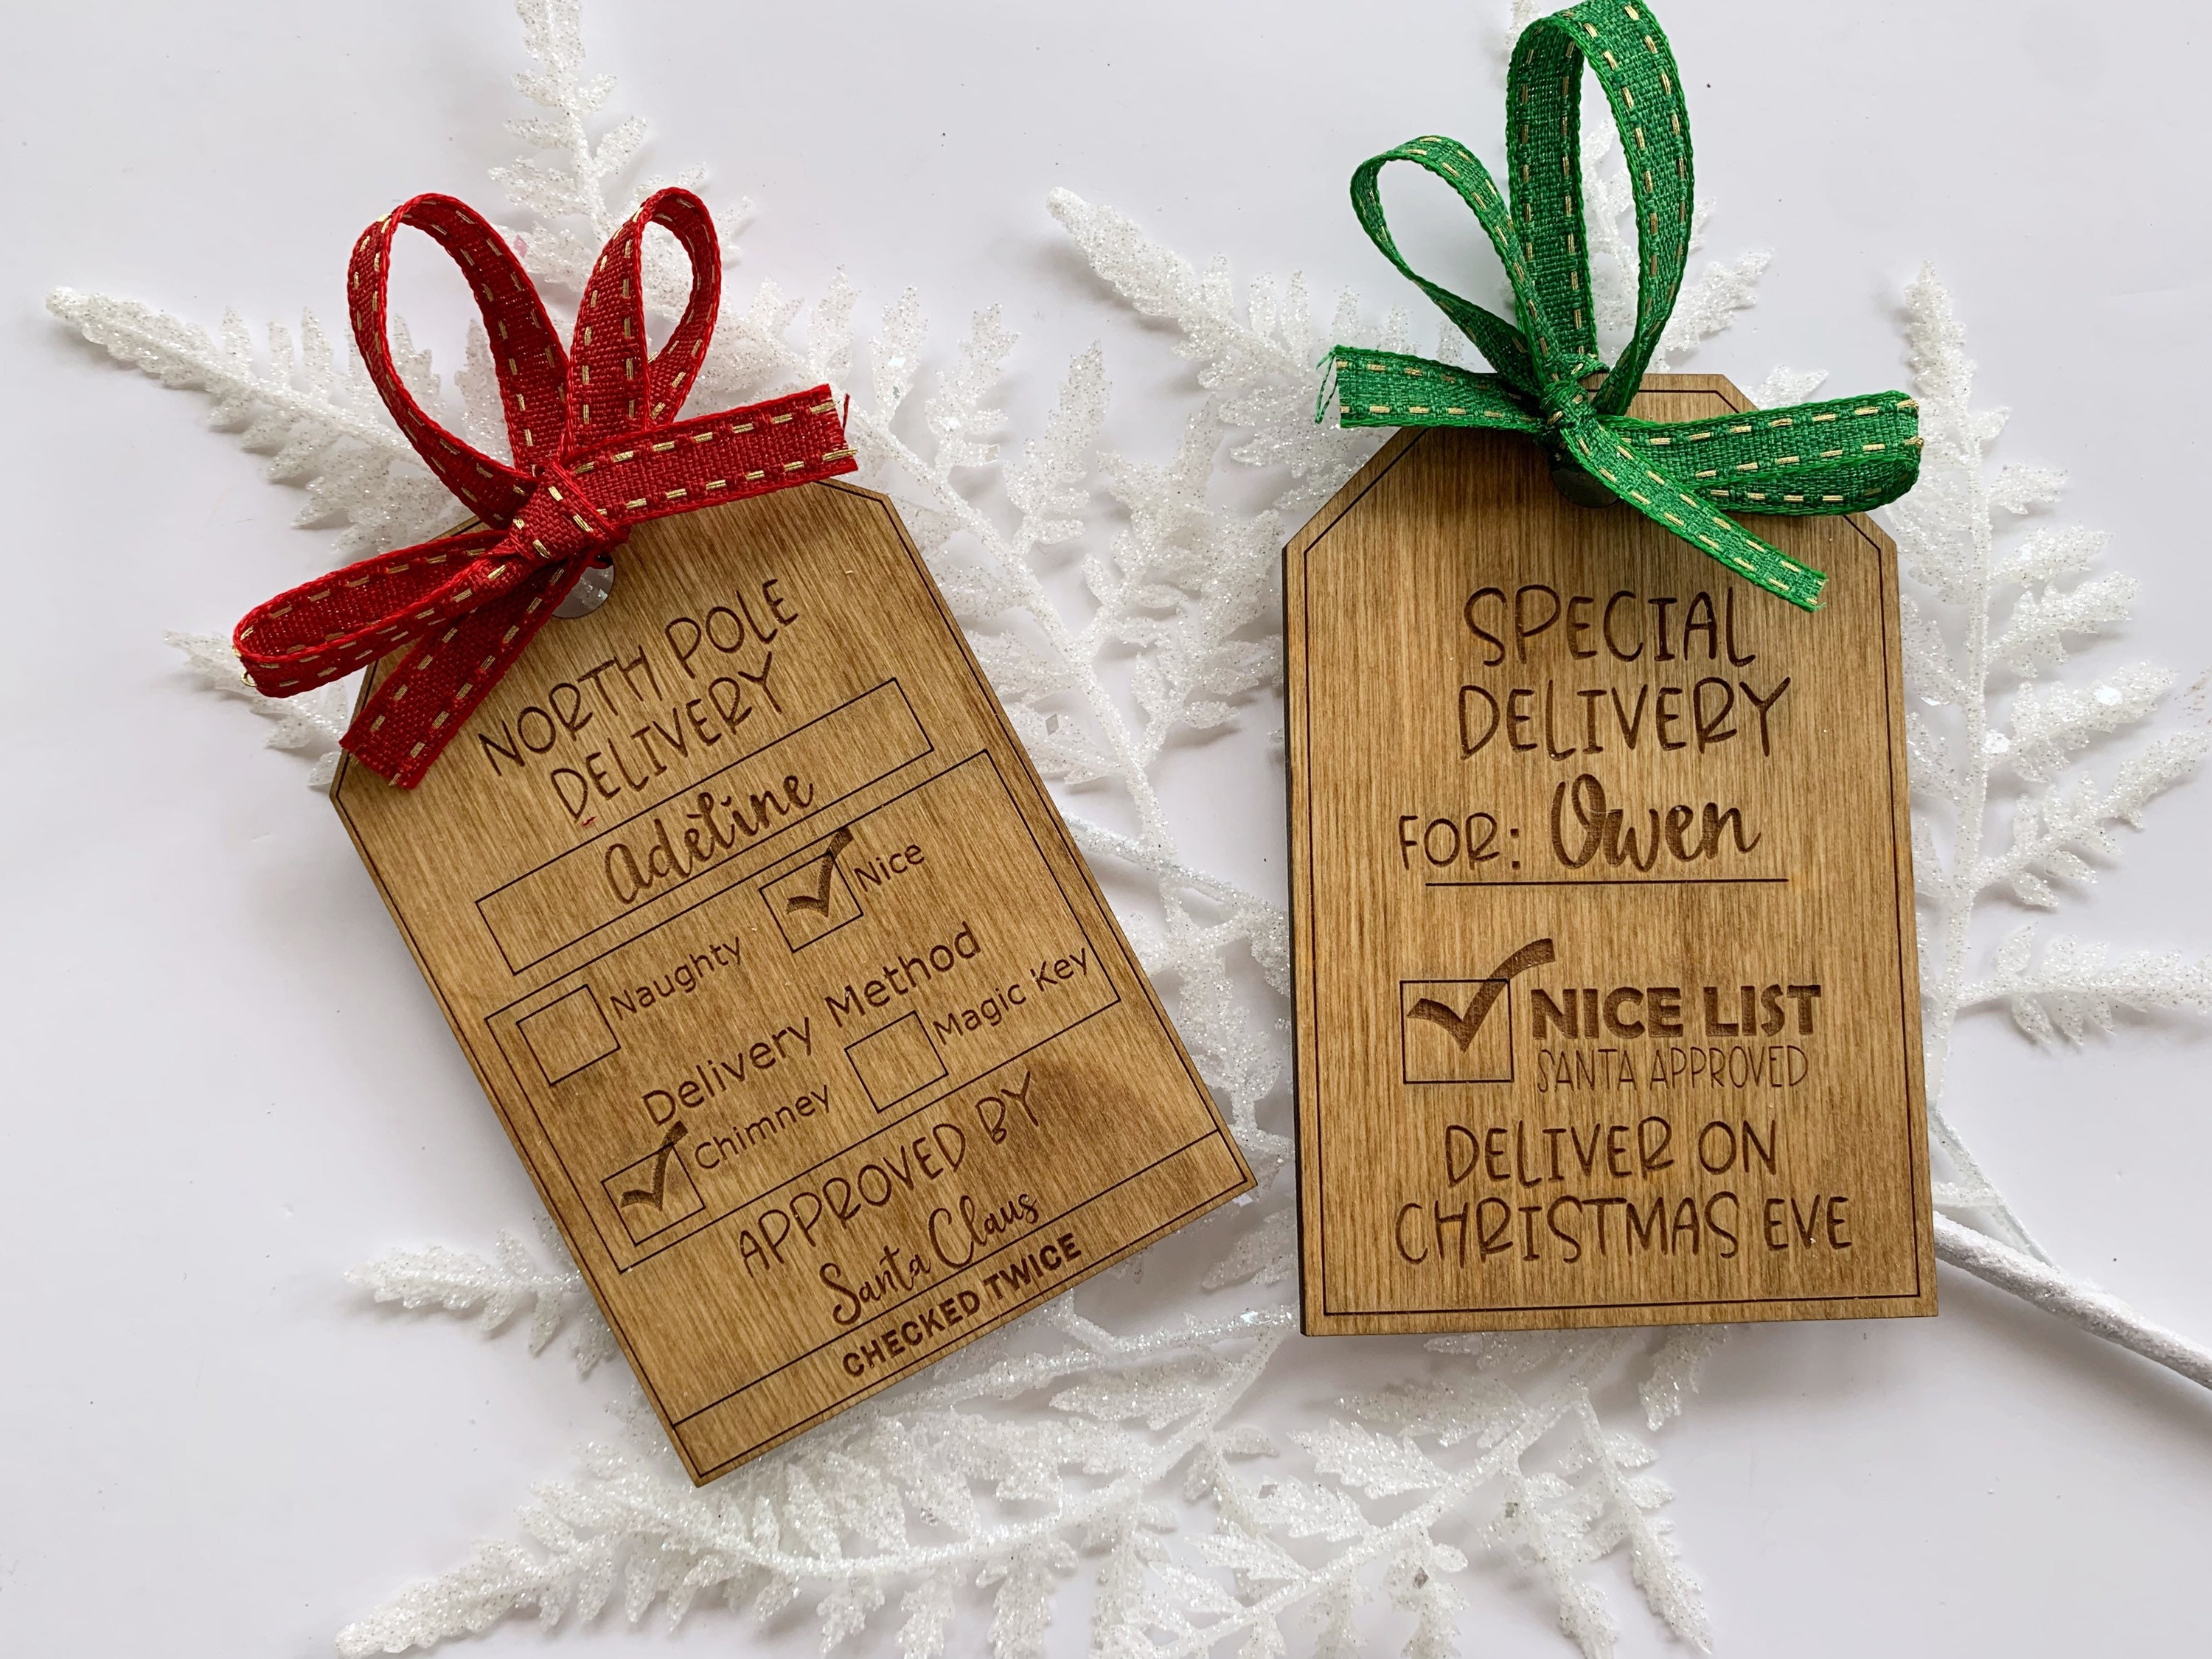 NORTH POLE
DELIVERY
Adeline
Naughty
Nice
Delivery Method
Chimney
Magic Key
APPROVED BY
Santa Claus
CHECKED TWICE
SPECIAL
DELIVERY
FOR: Owen
NICE LIST
SANTA APPROVED
DELIVER ON
CHRISTMAS EVE